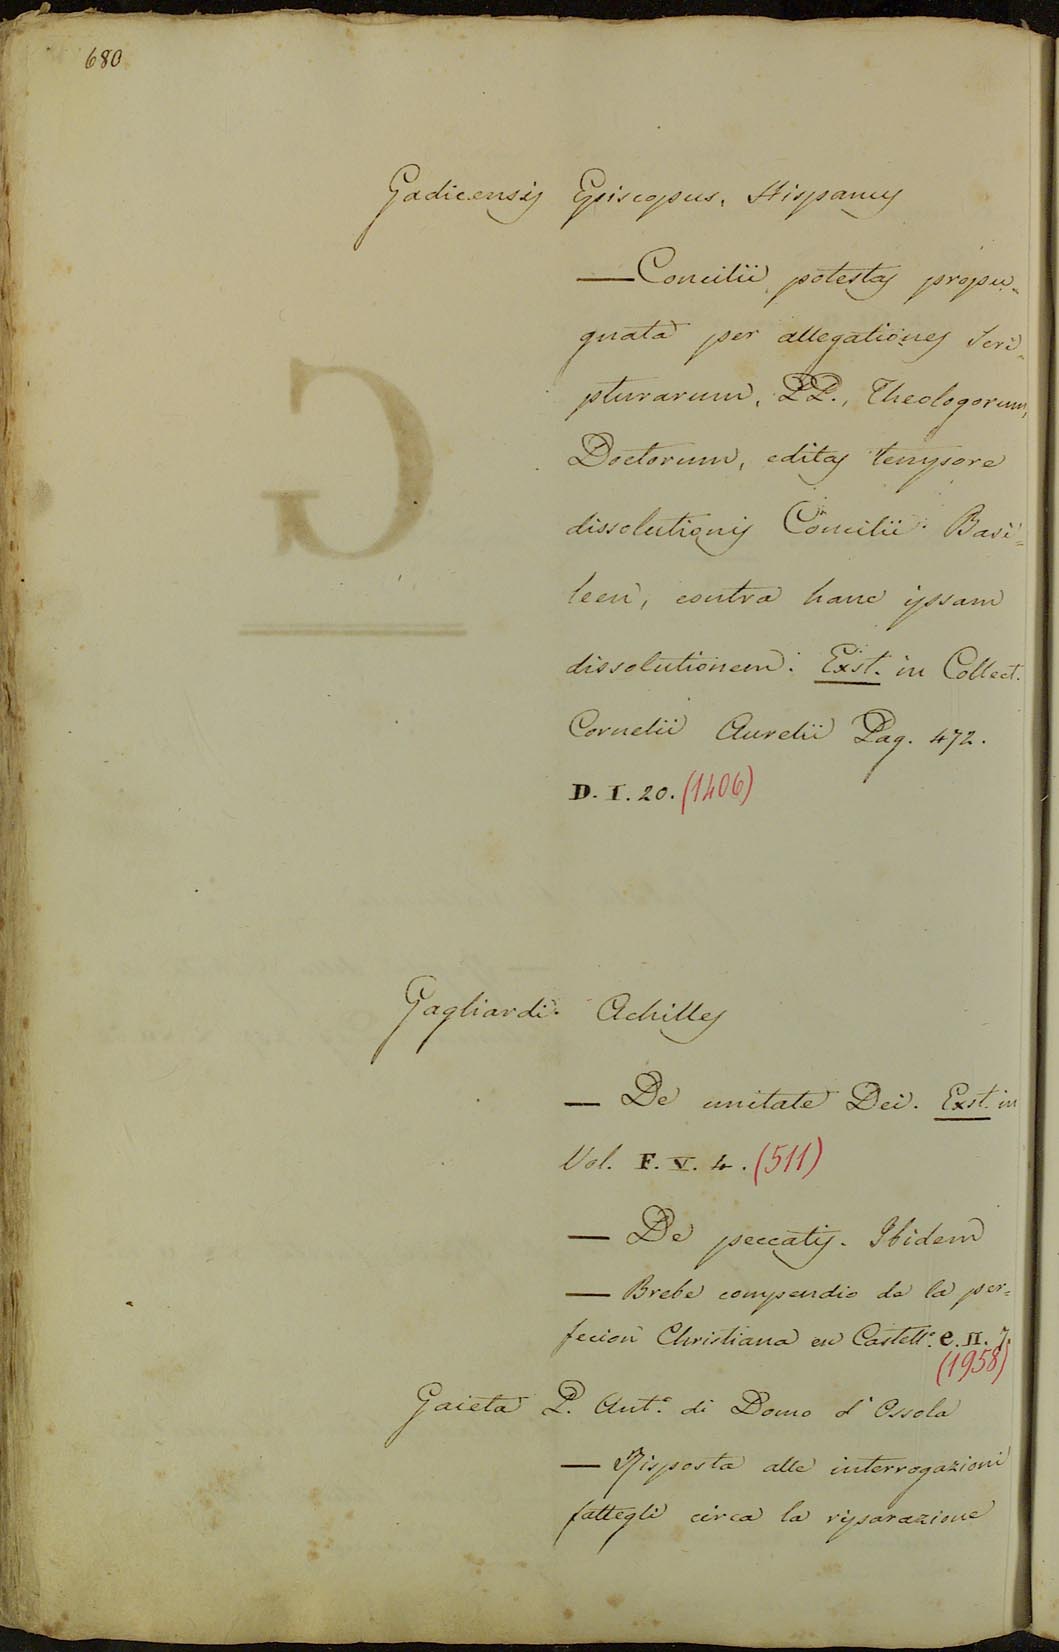 680
Gadicensis Episcopus, Hispanus
— Concilii potestas propu-
gnata per allegationes Scri-
pturarum, PP., Theologorum,
Doctorum, editas tempore
dissolutionis Concilii Basi=
leen, contra hanc ipsam
dissolutionem. Exst. in Collect.
Cornelii Aurelii Pag. 472.
D. I. 20. (1406)
Gagliardi Achilles
— De unitate Dei. Exst. in
Vol. F. V. 4. (511)
— De peccatis. Ibidem
— Brebe compendio de la per=
fecion Christiana en Castello. e. II. 7.
(1958)
Gaieta P. Anto. di Domo d'Ossola
— Risposta alle interrogazioni
fattegli circa la riparazione